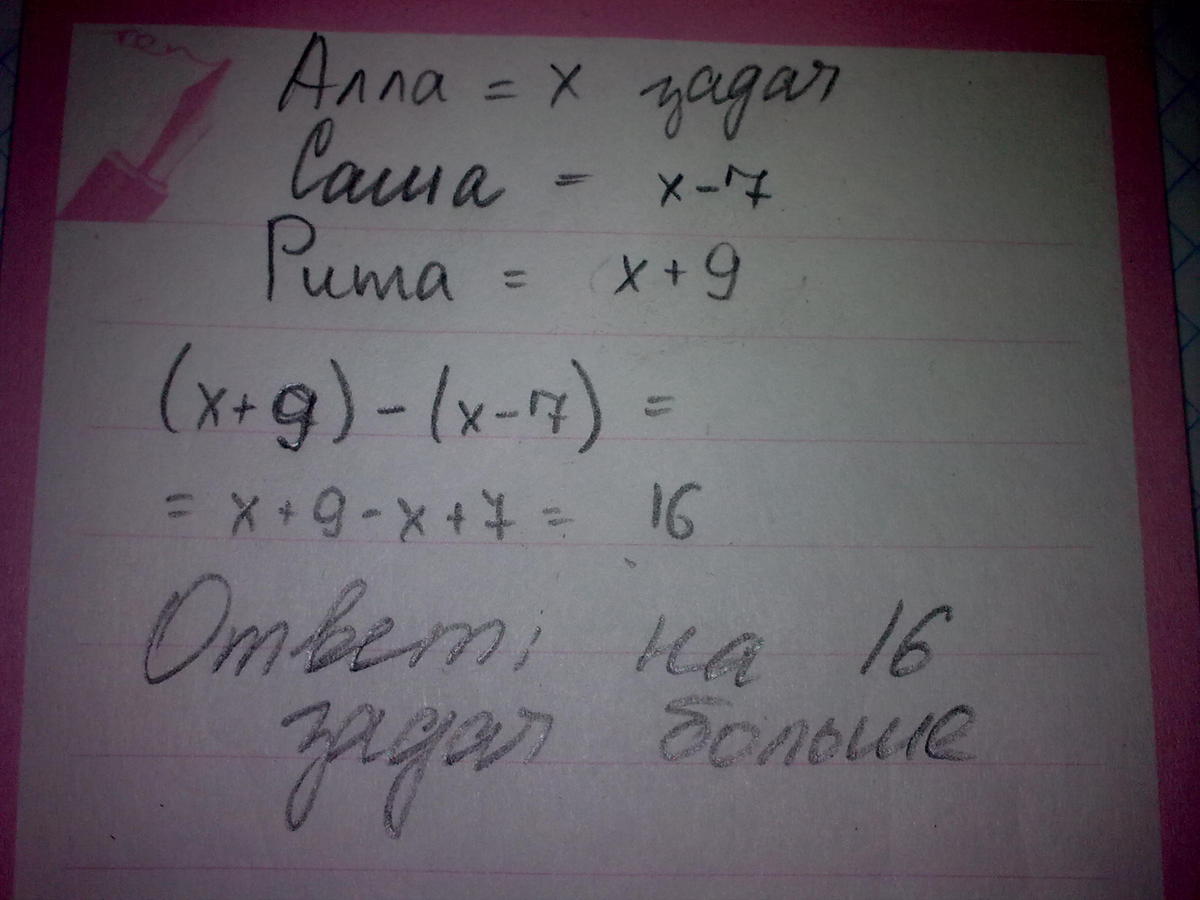 Алла = x задач
Саша = x-7
Рита = x+9
(x+9)-(x-7) =
= x+9-x+7= 16
Ответ: на 16
задач больше